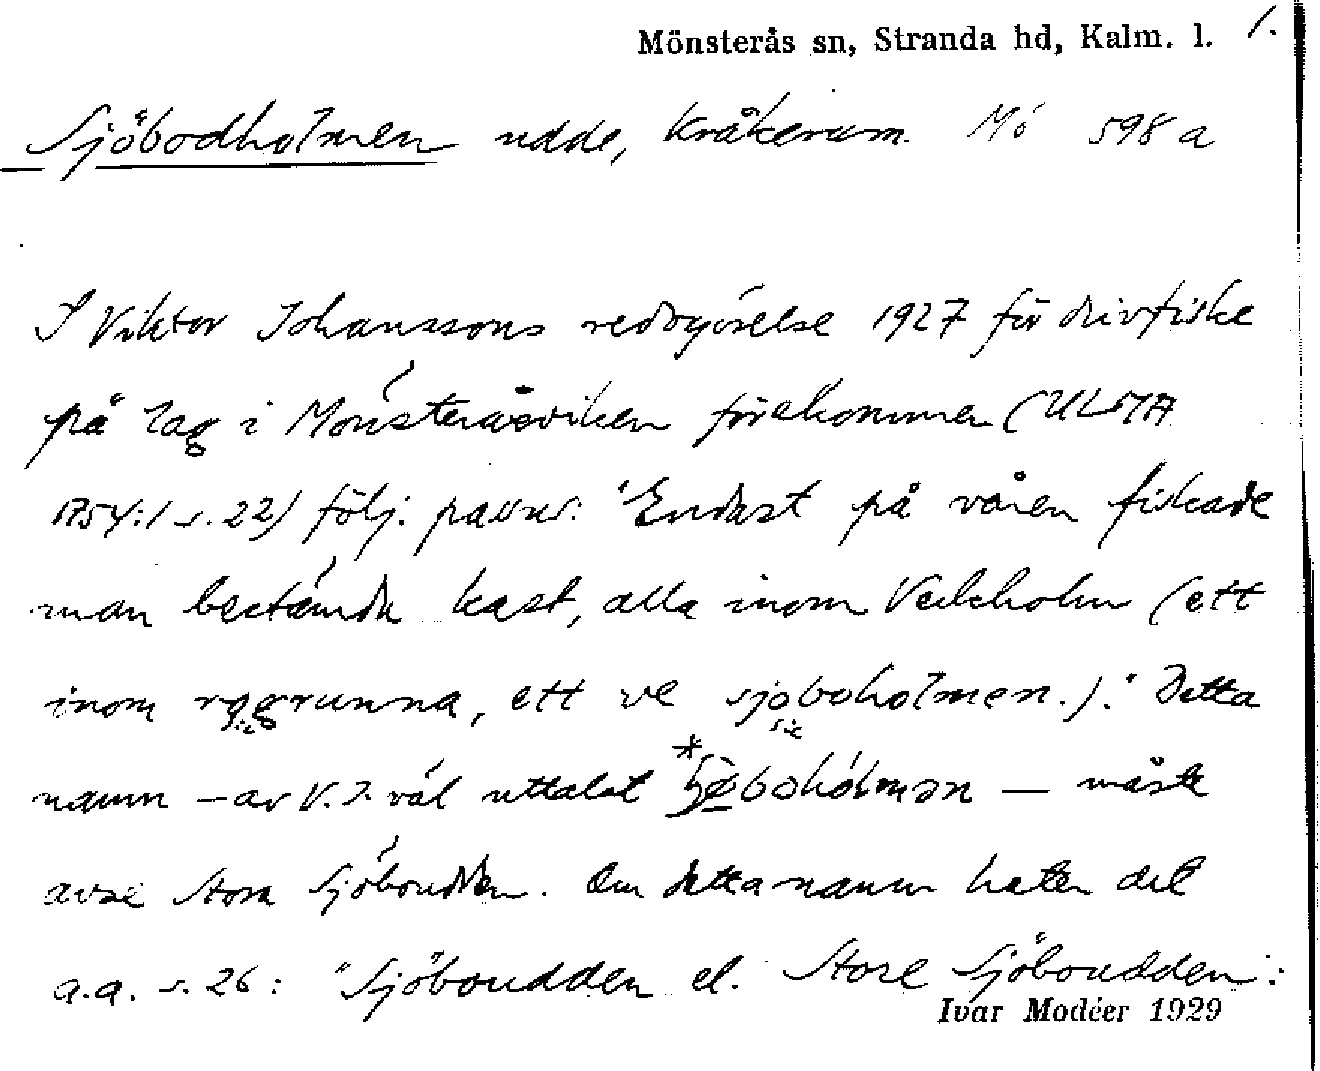 Mönsterås sn, Stranda hd, Kalm. l. 1.
Sjöbodholmen udde, Kråkerum. Mö 598 a
I Viktor Johanssons redogörelse 1927 för drivfiske
på lag i Mönsteråsviken förekommer (ULMA
1754:1 s. 22) följ. passus: "Endast på våren fiskade
man bestämda kast, alla inom Vekholm (ett
inom rggrunna, ett ve sjöboholmen.)." Detta
sic sic
namn – av V.J. väl uttalat – måste
avse Stora Sjöboudden. Om detta namn heter det
a.a. s. 26: "Sjöboudden el. Store Sjöboudden:
Ivar Modéer 1929